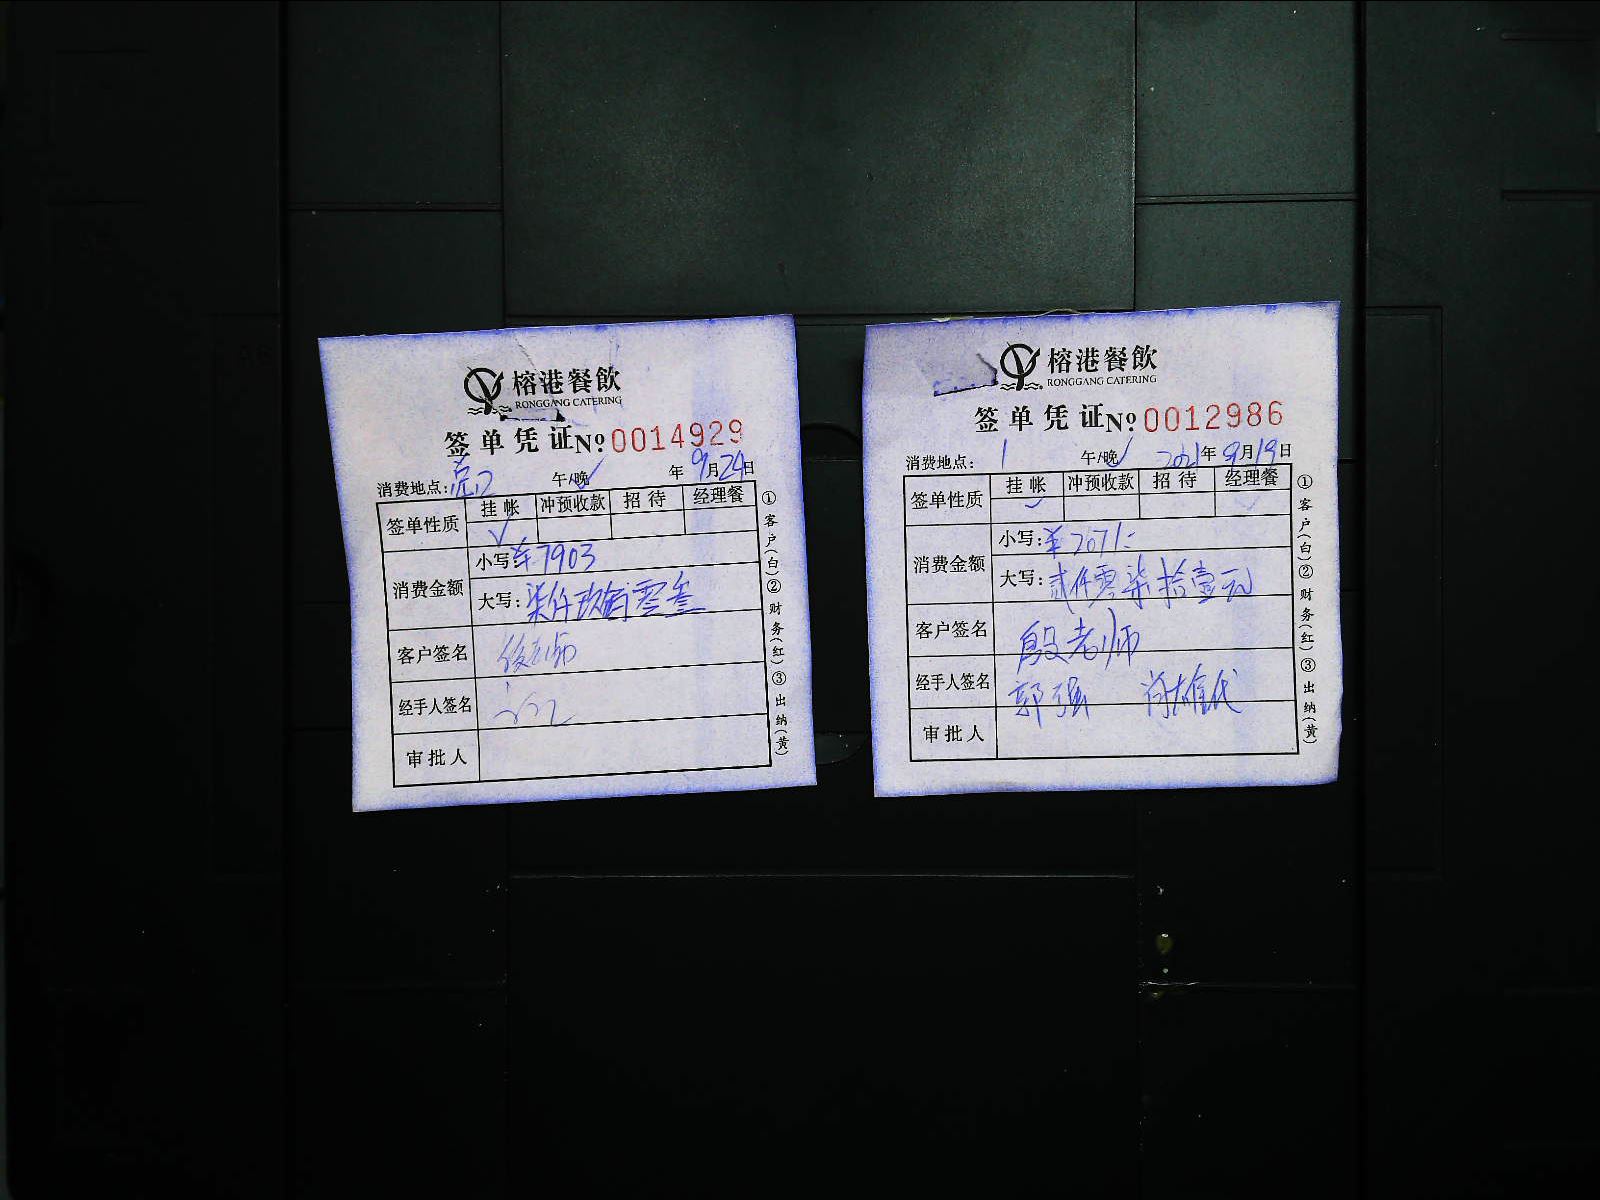 榕港餐飲
RONGGANG CATERING
签单凭证 № 0014929
消费地点: 午/晚✓ 年9月24日
签单性质 挂帐 冲预收款 招待 经理餐
✓
消费金额 小写:¥7903
大写:柒仟玖佰零叁
客户签名
经手人签名
审批人
①客户(白)②财务(红)③出纳(黄)
榕港餐飲
RONGGANG CATERING
签单凭证 № 0012986
消费地点: 1 午/晚✓ 2021年9月19日
签单性质 挂帐 冲预收款 招待 经理餐
✓
消费金额 小写:¥2071:
大写:贰仟零柒拾壹元
客户签名 殷老师
经手人签名 郭强
审批人
①客户(白)②财务(红)③出纳(黄)